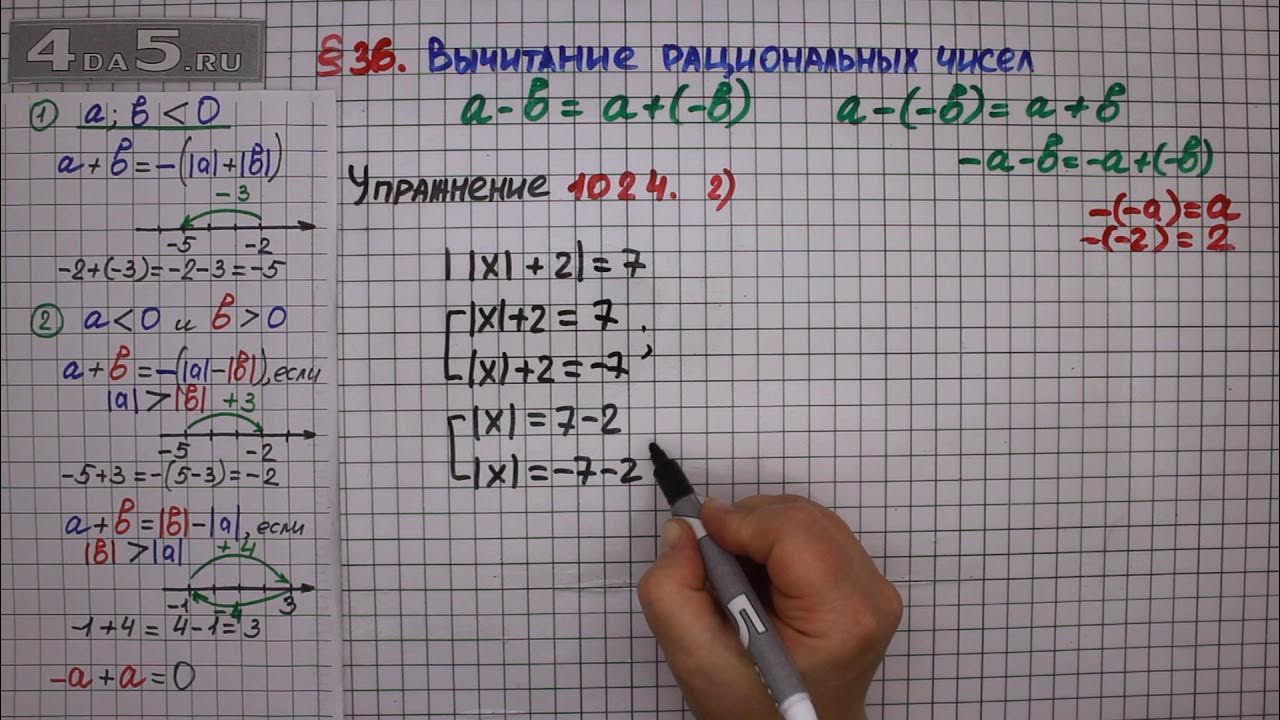 4DA5.RU
§36. Вычитание рациональных чисел
a-в = a+(-в)
a-(-в) = a+в
-a-в=-a+(-в)
-(-a)=a
-(-2)=2
① a; в < 0
a+в=-(|a|+|в|)
-3
-5 -2
-2+(-3)=-2-3=-5
② a<0 и в>0
a+в=-(|a|-|в|), если
|a|>|в| +3
-5 -2
-5+3=-(5-3)=-2
a+в=|в|-|a|, если
|в|>|a| +4
-1 -4 3
-1+4=4-1=3
-a+a=0
Упражнение 1024. 2)
||x|+2|=7
[|x|+2=7
|x|+2=-7;
[|x|=7-2
|x|=-7-2
Л